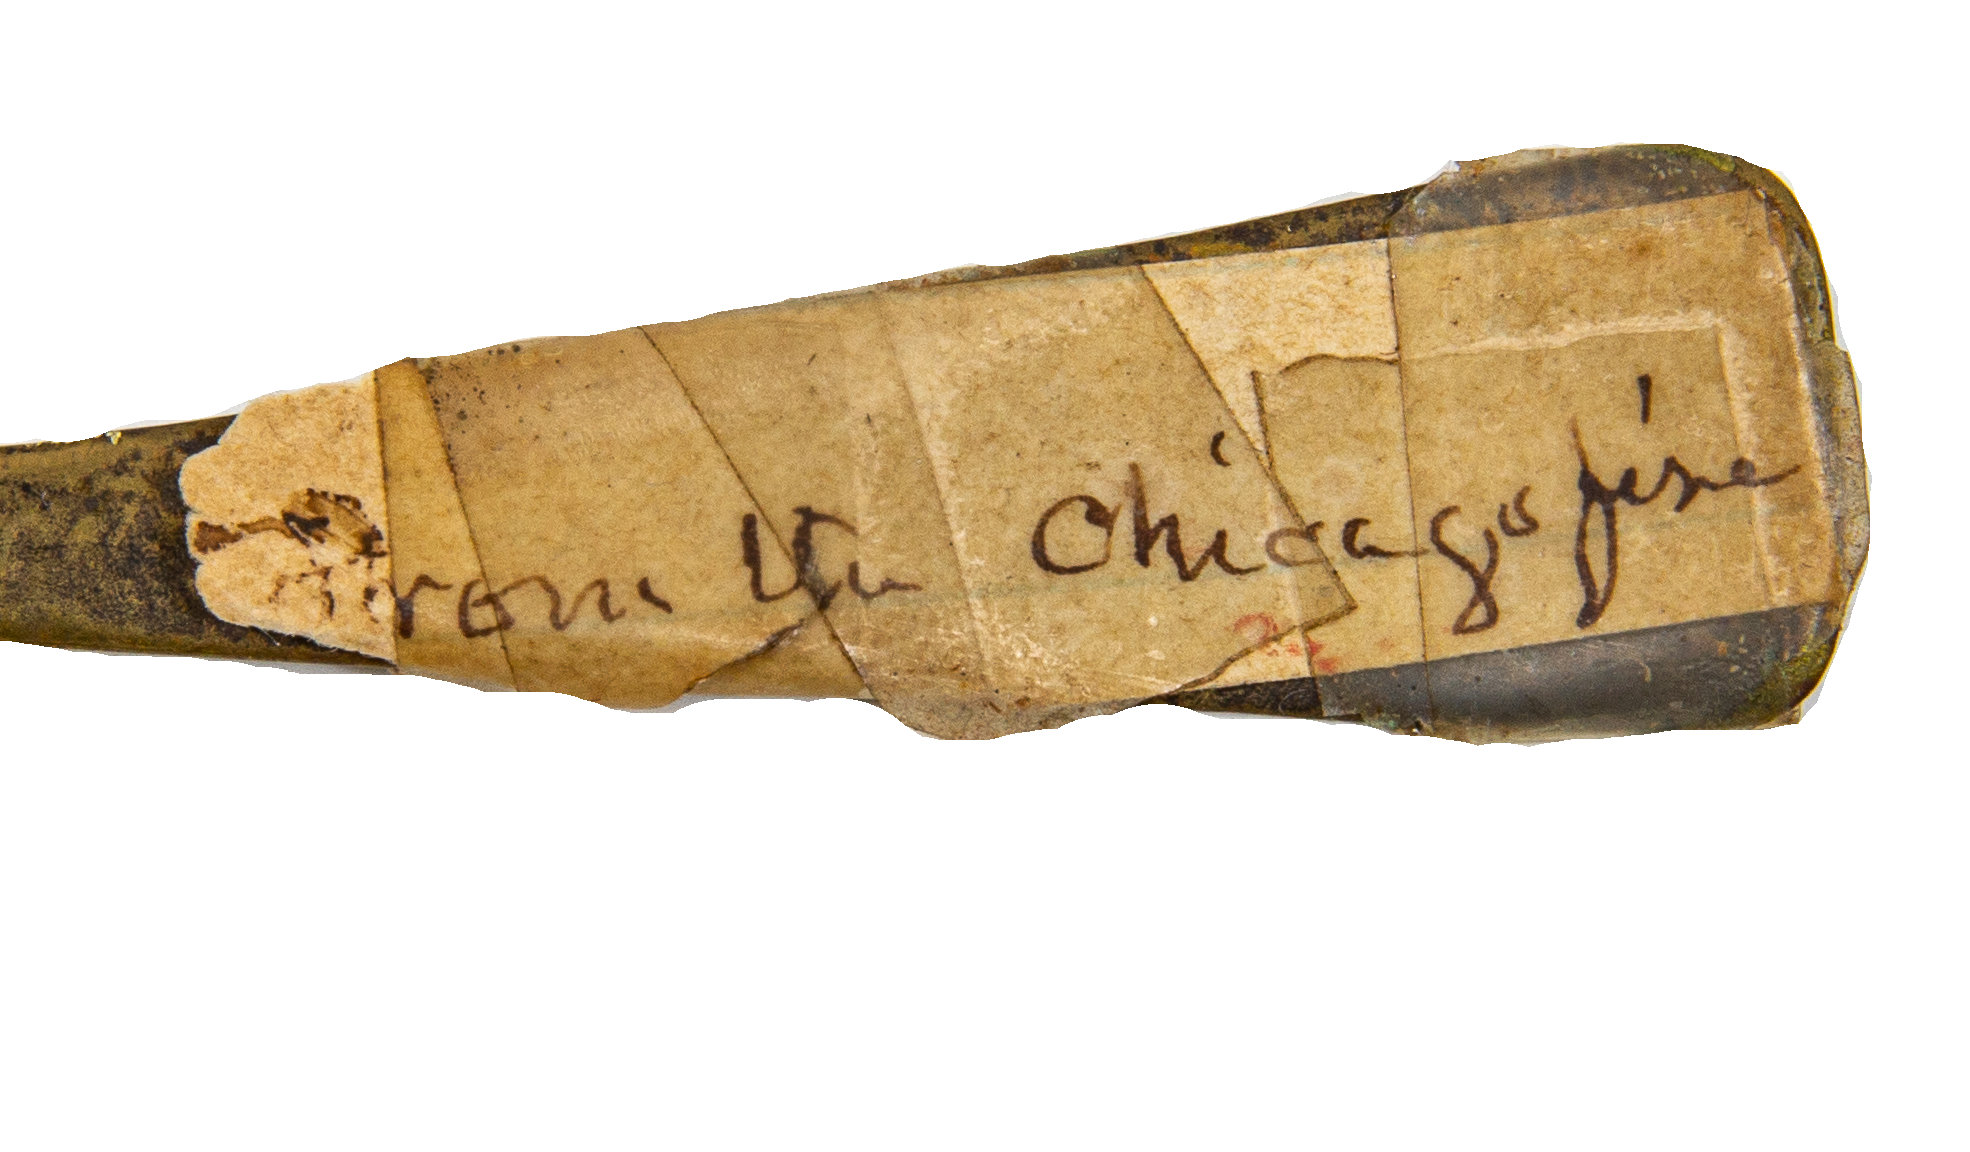 From the Chicago fire